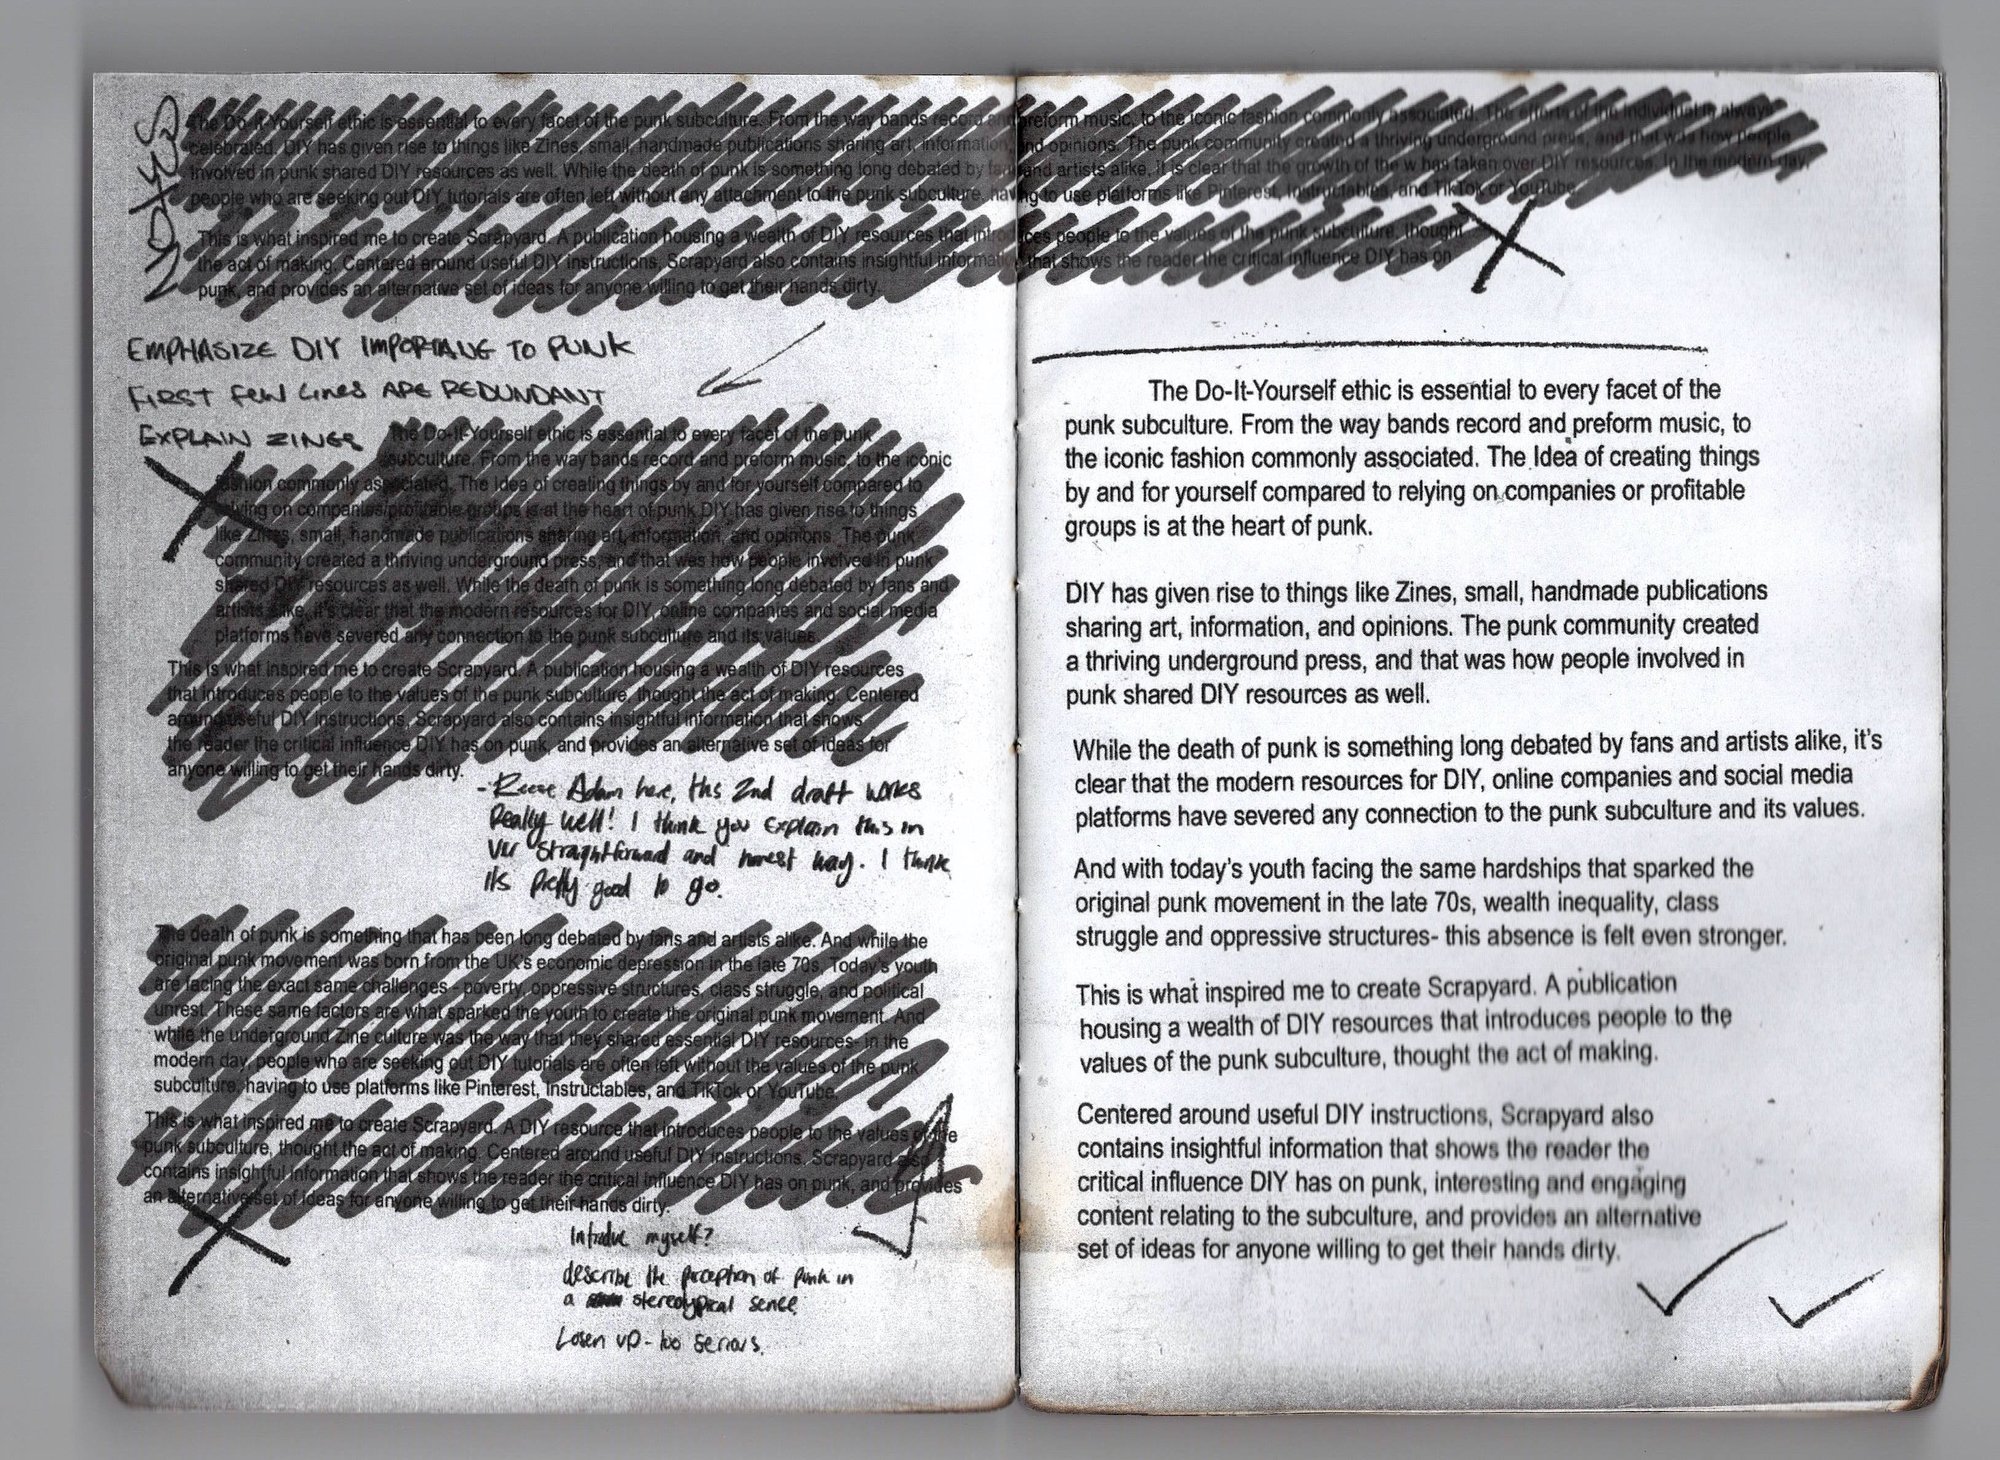 NOTES
The Do-It-Yourself ethic is essential to every facet of the punk subculture. From the way bands record and preform music, to the iconic fashion commonly associated. The efforts of the individual is always
celebrated. DIY has given rise to things like Zines, small, handmade publications sharing art, information, and opinions. The punk community created a thriving underground press, and that was how people
involved in punk shared DIY resources as well. While the death of punk is something long debated by fans and artists alike, it is clear that the growth of the w has taken over DIY resources. In the modern day,
people who are seeking out DIY tutorials are often left without any attachment to the punk subculture, having to use platforms like Pinterest, Instructables, and TikTok or YouTube.
This is what inspired me to create Scrapyard. A publication housing a wealth of DIY resources that introduces people to the values of the punk subculture, thought
the act of making. Centered around useful DIY instructions, Scrapyard also contains insightful information that shows the reader the critical influence DIY has on
punk, and provides an alternative set of ideas for anyone willing to get their hands dirty.
EMPHASIZE DIY IMPORTANCE TO PUNK
FIRST FEW LINES ARE REDUNDANT
EXPLAIN ZINES
The Do-It-Yourself ethic is essential to every facet of the punk
subculture. From the way bands record and preform music, to the iconic
fashion commonly associated. The Idea of creating things by and for yourself compared to
relying on companies/profitable groups is at the heart of punk.DIY has given rise to things
like Zines, small, handmade publications sharing art, information, and opinions. The punk
community created a thriving underground press, and that was how people involved in punk
shared DIY resources as well. While the death of punk is something long debated by fans and
artists alike, it's clear that the modern resources for DIY, online companies and social media
platforms have severed any connection to the punk subculture and its values.
This is what inspired me to create Scrapyard. A publication housing a wealth of DIY resources
that introduces people to the values of the punk subculture, thought the act of making. Centered
around useful DIY instructions, Scrapyard also contains insightful information that shows
the reader the critical influence DIY has on punk, and provides an alternative set of ideas for
anyone willing to get their hands dirty.
- Reese Adam here, this 2nd draft works
really well! I think you explain this in
straightforward and honest way. I think
its pretty good to go.
The death of punk is something that has been long debated by fans and artists alike. And while the
original punk movement was born from the UK's economic depression in the late 70s, Today's youth
are facing the exact same challenges - poverty, oppressive structures, class struggle, and political
unrest. These same factors are what sparked the youth to create the original punk movement. And
while the underground Zine culture was the way that they shared essential DIY resources- in the
modern day, people who are seeking out DIY tutorials are often left without the values of the punk
subculture, having to use platforms like Pinterest, Instructables, and TikTok or YouTube.
This is what inspired me to create Scrapyard. A DIY resource that introduces people to the values of the
punk subculture, thought the act of making. Centered around useful DIY instructions, Scrapyard also
contains insightful information that shows the reader the critical influence DIY has on punk, and provides
an alternative set of ideas for anyone willing to get their hands dirty.
Introdue myself?
describe the perception of punk in
a stereotypical sense
Losen up - too serious.
The Do-It-Yourself ethic is essential to every facet of the
punk subculture. From the way bands record and preform music, to
the iconic fashion commonly associated. The Idea of creating things
by and for yourself compared to relying on companies or profitable
groups is at the heart of punk.
DIY has given rise to things like Zines, small, handmade publications
sharing art, information, and opinions. The punk community created
a thriving underground press, and that was how people involved in
punk shared DIY resources as well.
While the death of punk is something long debated by fans and artists alike, it's
clear that the modern resources for DIY, online companies and social media
platforms have severed any connection to the punk subculture and its values.
And with today's youth facing the same hardships that sparked the
original punk movement in the late 70s, wealth inequality, class
struggle and oppressive structures- this absence is felt even stronger.
This is what inspired me to create Scrapyard. A publication
housing a wealth of DIY resources that introduces people to the
values of the punk subculture, thought the act of making.
Centered around useful DIY instructions, Scrapyard also
contains insightful information that shows the reader the
critical influence DIY has on punk, interesting and engaging
content relating to the subculture, and provides an alternative
set of ideas for anyone willing to get their hands dirty.